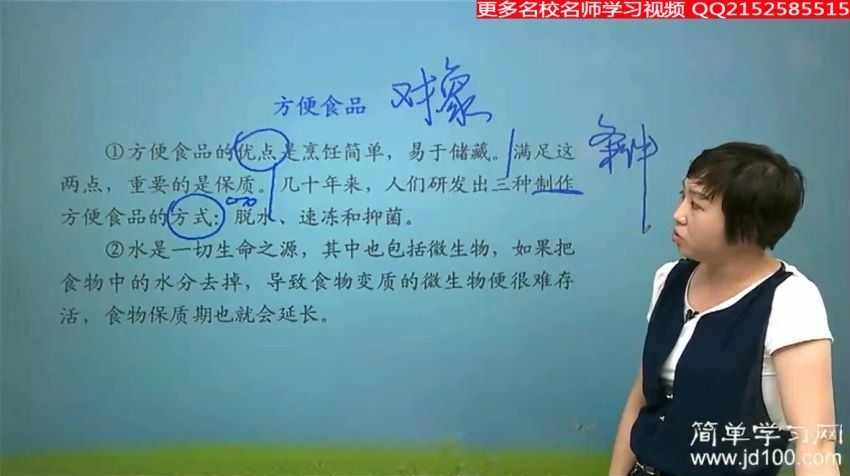 更多名校名师学习视频 QQ2152585515
方便食品 对象
①方便食品的优点是烹饪简单，易于储藏。满足这 条件
两点，重要的是保质。几十年来，人们研发出三种制作
方便食品的方式：脱水、速冻和抑菌。
②水是一切生命之源，其中也包括微生物，如果把
食物中的水分去掉，导致食物变质的微生物便很难存
活，食物保质期也就会延长。
简单学习网
www.jd100.com